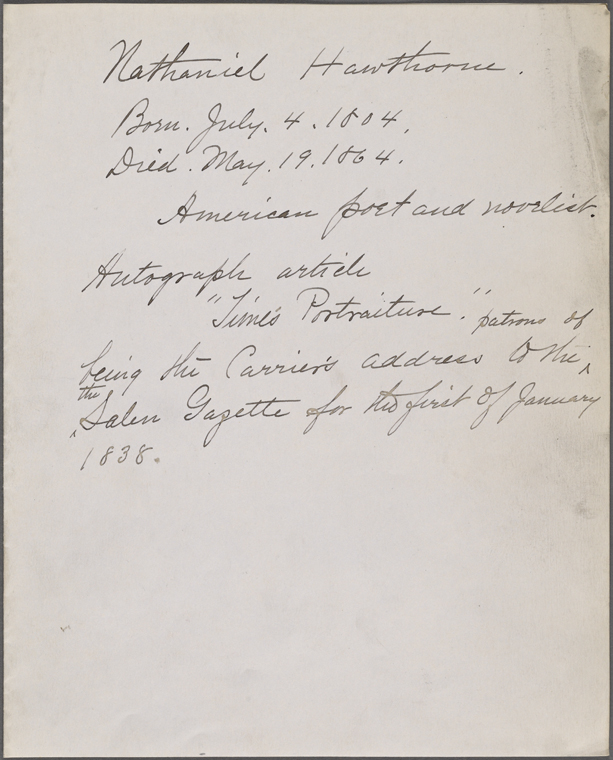 Nathaniel Hawthorne.
Born. July. 4. 1804.
Died. May. 19. 1864.
American poet and novelist.
Autograph article
"Time's Portraiture."
patrons of
being the Carrier's address to the ^
the
^ Salem Gazette for the first of January
1838.